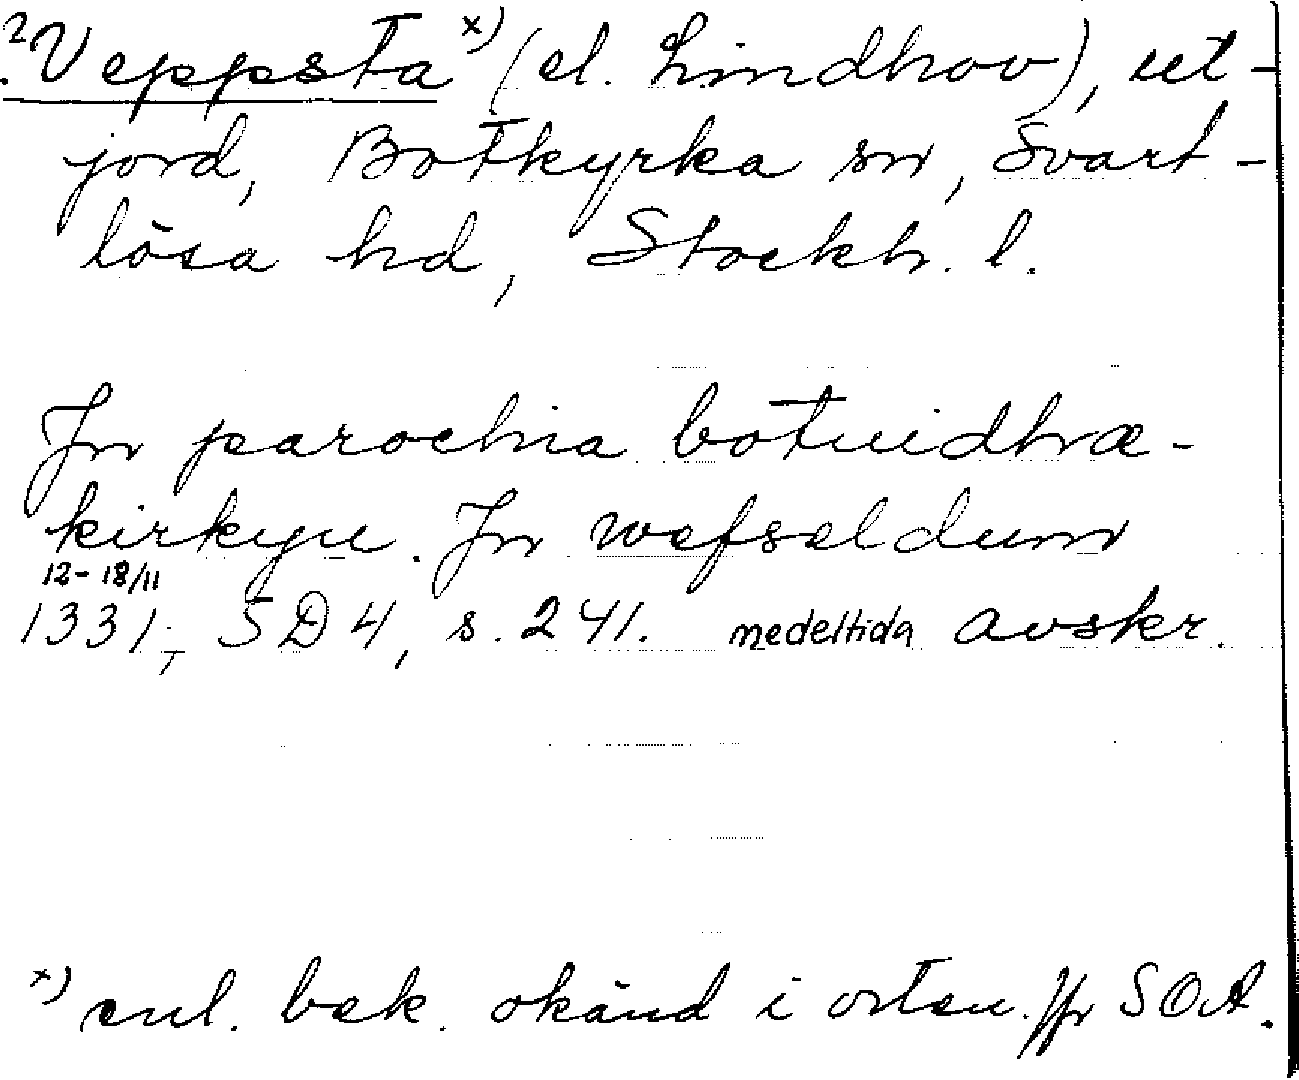 ? Veppsta x) (el. Lindhov), ut-
jord, Botkyrka sn, Svart-
lösa hd, Stockh. l.
Jn parochia botuidhræ-
kirkyu. Jn wefsaldum
12-18/11
1331, SD 4, s. 241. medeltida avskr.
x) enl. bek. okänd i orten. Jfr SOA.